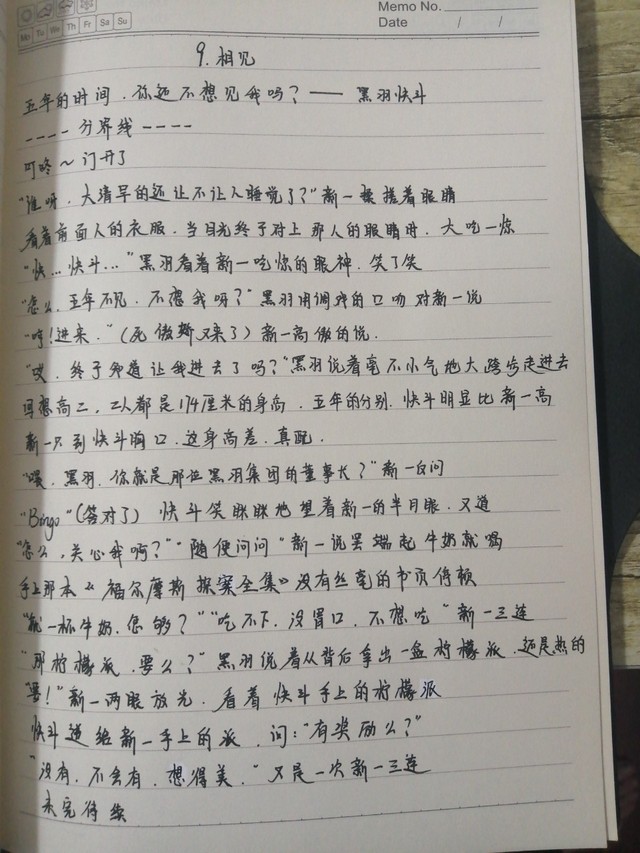 Memo No.
Mo Tu We Th Fr Sa Su
Date / /
9.相见
五年的时间.你还不想见我吗?——黑羽快斗
----分界线----
叮咚~门开了
"谁呀.大清早的还让不让人睡觉了?"新一揉搓着眼睛
看着前面人的衣服.当目光终于对上那人的眼睛时.大吃一惊
"快...快斗..."黑羽看着新一吃惊的眼神.笑了笑
"怎么.五年不见.不想我呀?"黑羽用调戏的口吻对新一说
"哼!进来."(死傲娇又来了)新一高傲的说.
"哎.终于知道让我进去了吗?"黑羽说着毫不小气地大跨步走进去
回想高二.二人都是174厘米的身高.五年的分别.快斗明显比新一高
新一只到快斗胸口.这身高差.真配.
"喂.黑羽.你就是那位黑羽集团的董事长?"新一反问
"Bingo"(答对了) 快斗笑眯眯地望着新一的半月眼.又道
"怎么,关心我啊?""随便问问"新一说罢端起牛奶就喝
手上那本《福尔摩斯探案全集》没有丝毫的书页停顿
"就一杯牛奶.您够?""吃不下.没胃口.不想吃"新一三连
"那柠檬派.要么?"黑羽说着从背后拿出一盒柠檬派.还是热的
"要!"新一两眼放光.看着快斗手上的柠檬派
快斗递给新一手上的派.问:"有奖励么?"
"没有.不会有.想得美."又是一次新一三连
未完待续